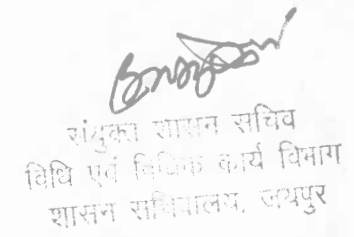 संयुक्त शासन सचिव
विधि एवं विधिक कार्य विभाग
शासन सचिवालय, जयपुर